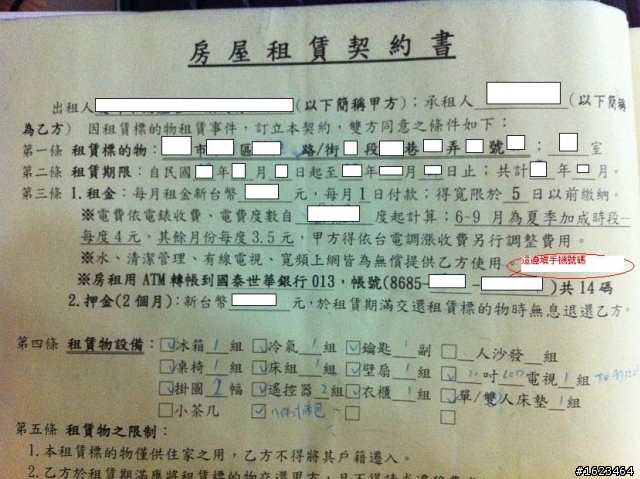 房屋租賃契約書
出租人 (以下簡稱甲方)；承租人 (以下簡稱
為乙方) 因租賃標的物租賃事件，訂立本契約，雙方同意之條件如下：
第一條 租賃標的物： 市 區 路/街 段 巷 弄 號 ： 室
第二條 租賃期限：自民國 年 月 日起至 年 月 日止；共計 年 月。
第三條 1.租金：每月租金新台幣 元，每月1日付款；得寬限於 5 日以前繳納。
※電費依電錶收費、電費度數自 度起計算；6~9 月為夏季加成時段
每度 4元，其餘月份每度 3.5 元，甲方得依台電調漲收費另行調整費用。
※水、清潔管理、有線電視、寬頻上網皆為無償提供乙方使用
這邊填手機號碼
※房租用 ATM 轉帳到國泰世華銀行 013，帳號(8685- - )共 14 碼
2.押金(2 個月)：新台幣 元，於租賃期滿交還租賃標的物時無息退還乙方。
第四條 租賃物設備：冰箱 1 組 冷氣 1 組 鑰匙 副 人沙發 組
桌椅 1 組 床組 1 組 壁扇 1 組 20 吋 LCD 電視 1 組
掛圖 2 幅 遙控器 2 組 衣櫃 1 組 單/雙人床墊 1 組
小茶几
第五條 租賃物之限制：
1.本租賃標的物僅供住家之用，乙方不得將其戶籍遷入。
2.乙方於租賃期滿應將租賃標的物交還甲方，且不得請求遷移費
#1623464